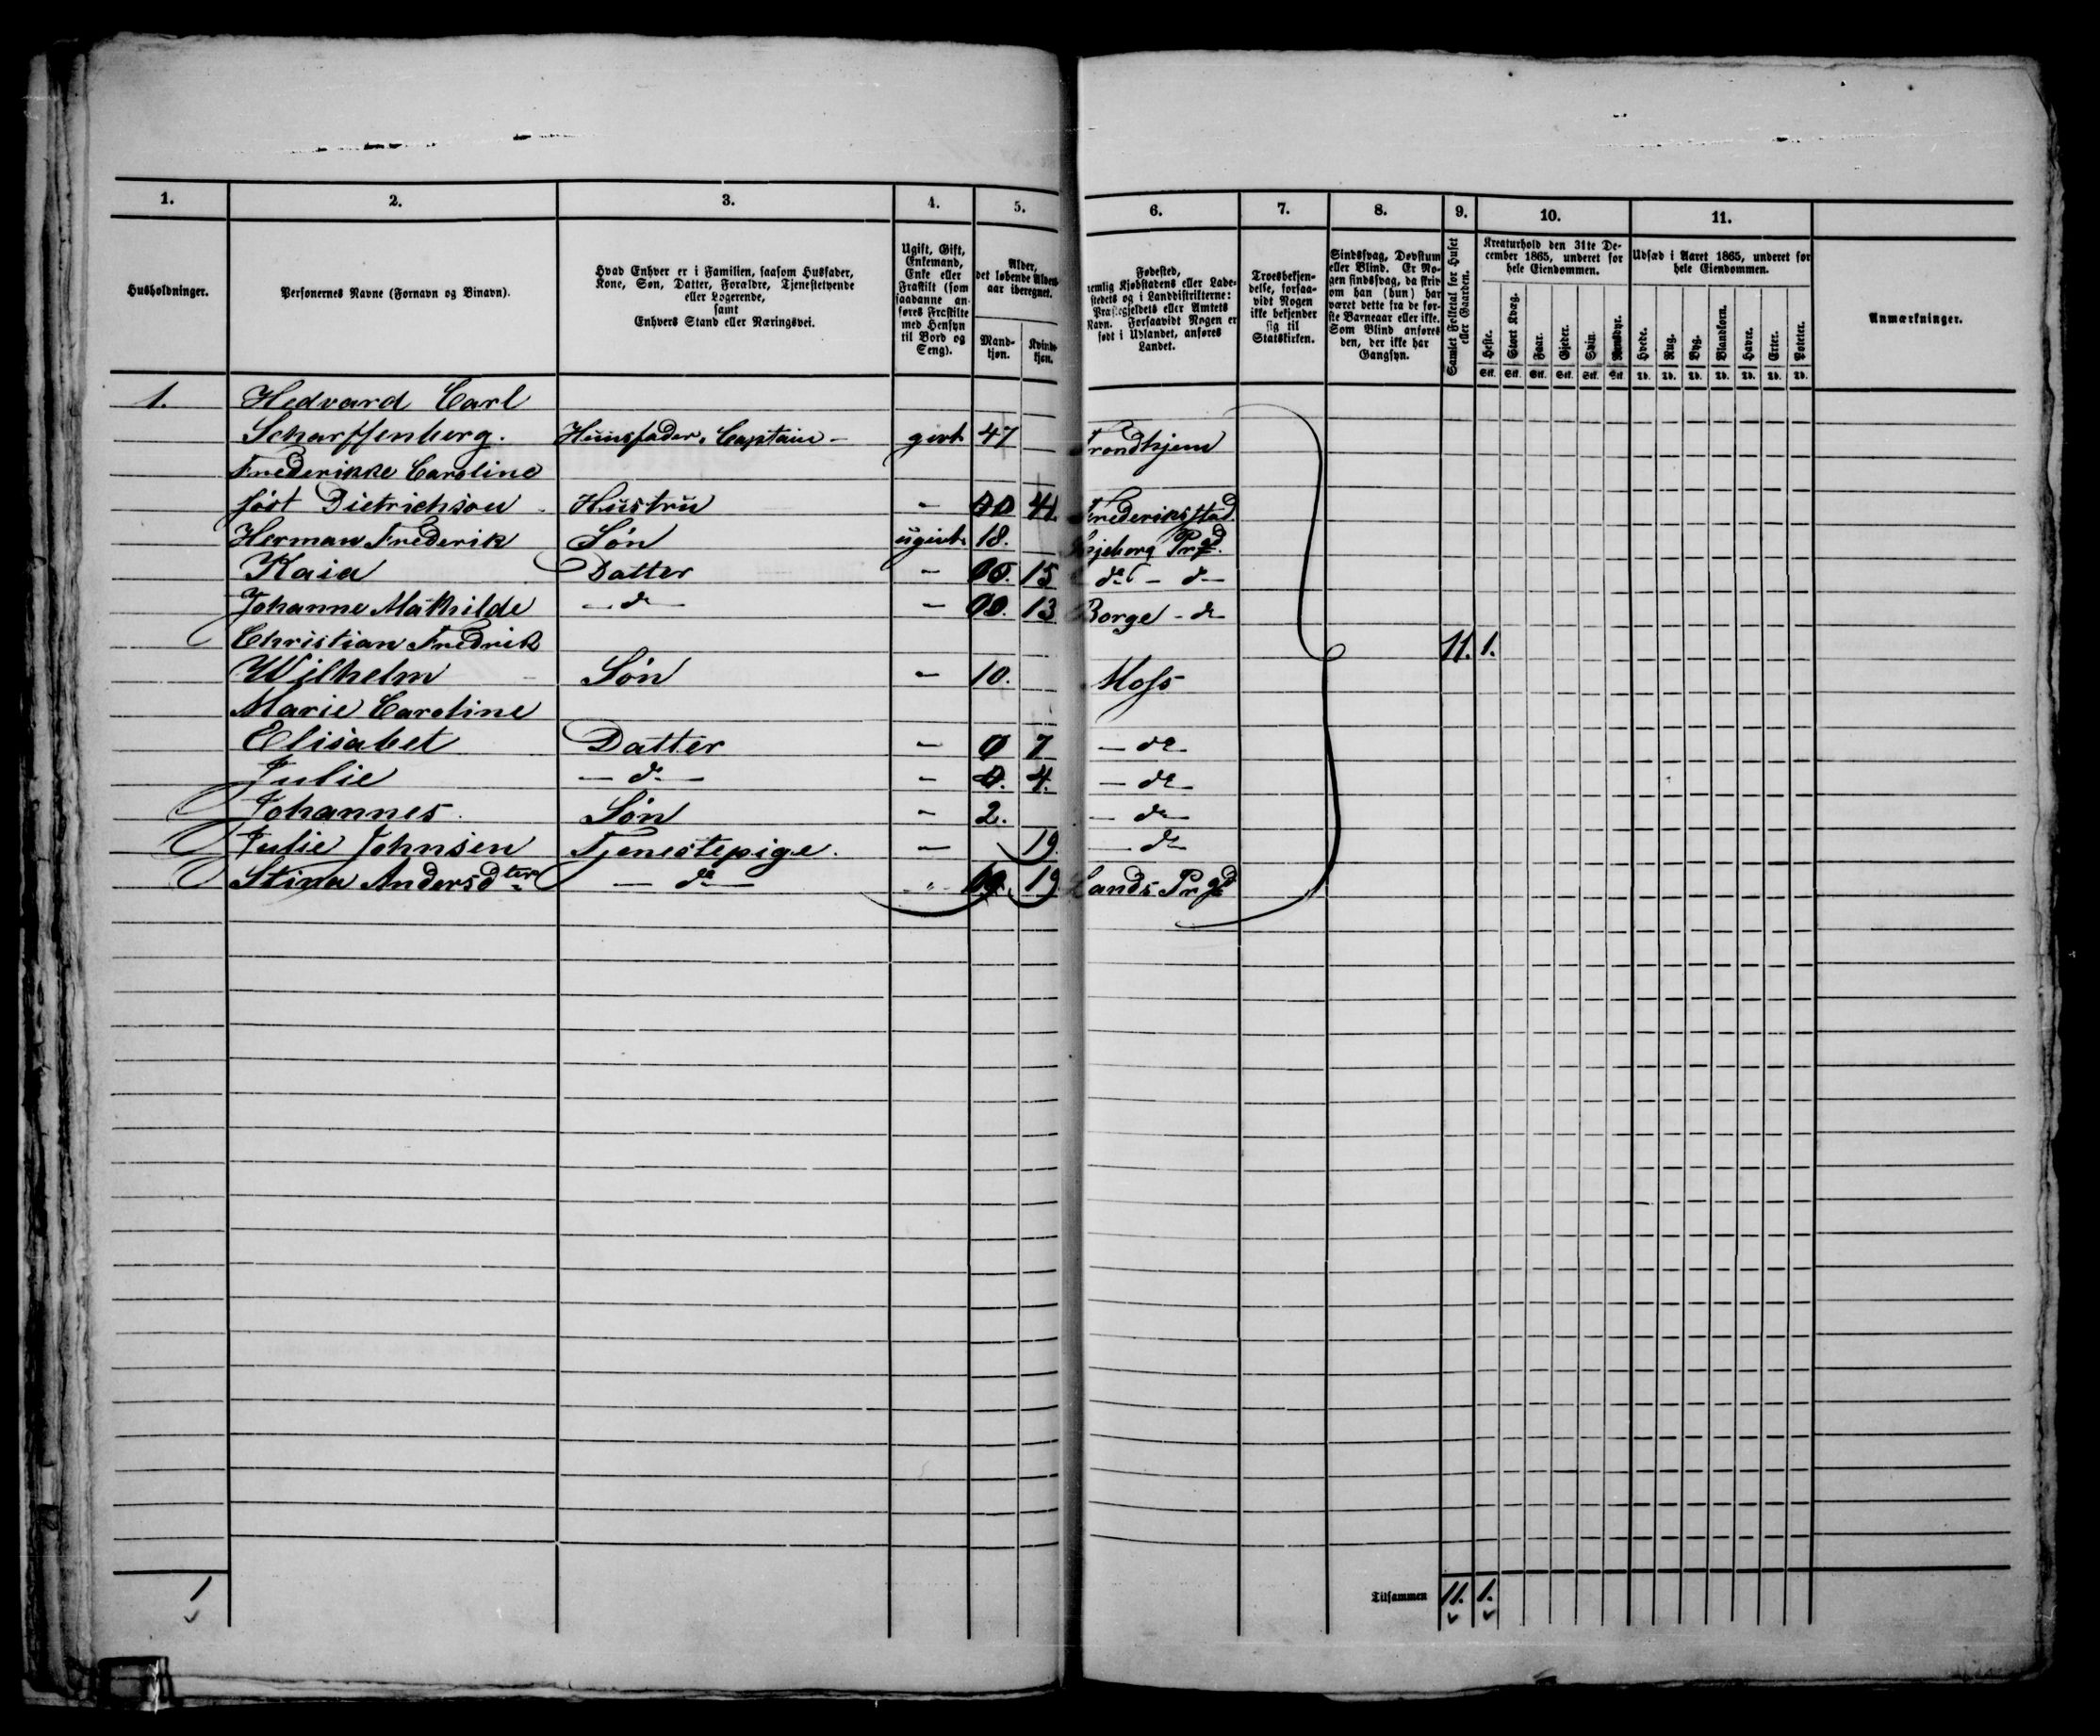 1. 2. 3. 4. 5. 6. 7. 8. 9. 10. 11.
Husholdninger.
Personernes Navne (Fornavn og Binavn).
Hvad Enhver er i Familien, saasom Husfader,
Kone, Søn, Datter, Forældre, Tjenestetyende
eller Logerende,
samt
Enhvers Stand eller Næringsvei.
Ugift, Gift,
Enkemand,
Enke eller
Fraskilt (som
saadanne an-
føres Fraskilte
med Hensyn
til Bord og
Seng).
Alder,
det løbende Alders-
aar iberegnet.
Mand-
kjøn.
Kvinde-
kjøn.
Fødested,
nemlig Kjøbstadens eller Lade-
stedets og i Landdistrikterne:
Præstegjeldets eller Amtets
Navn. Forsaavidt Nogen er
født i Udlandet, anføres
Landet.
Troesbekjen-
delse, forsaa-
vidt Nogen
ikke bekjender
sig til
Statskirken.
Sindssvag, Døvstum
eller Blind. Er No-
gen sindssvag, da skriv
om han (hun) har
været dette fra de før-
ste Barneaar eller ikke.
Som Blind anføres
den, der ikke har
Gangsyn.
Samlet Folketal for Huset
eller Gaarden.
Kreaturhold den 31te De-
cember 1865, underet for
hele Eiendommen.
Heste. Stort Kvæg. Faar. Gjeder. Svin. Rensdyr.
Stk. Stk. Stk. Stk. Stk. Stk.
Udsæd i Aaret 1865, underet for
hele Eiendommen.
Hvede. Rug. Byg. Blandkorn. Havre. Erter. Poteter.
Td. Td. Td. Td. Td. Td. Td.
Anmærkninger.
1. Hedvard Carl
Scharffenberg. Huusfader, Captain - givt 47 Trondhjem
Frederikke Caroline
født Dietrichson Hustru - 41. Frederiksstad
Herman Frederik Søn ugivt 18. Prgd.
Kaia Datter - 15 do - do
Johanne Mathilde - do - - 13 Borge - do
Christian Fredrik 11. 1.
Wilhelm Søn - 10. Moss
Marie Caroline
Elisabet Datter - 7 - do
Julie - do - - 4. - do -
Johannes Søn - 2. - do -
Julie Johnsen Tjenestepige. - 19. - do
Stina Andersdter - do - " 19 Prgd
1 Tilsammen 11. 1.